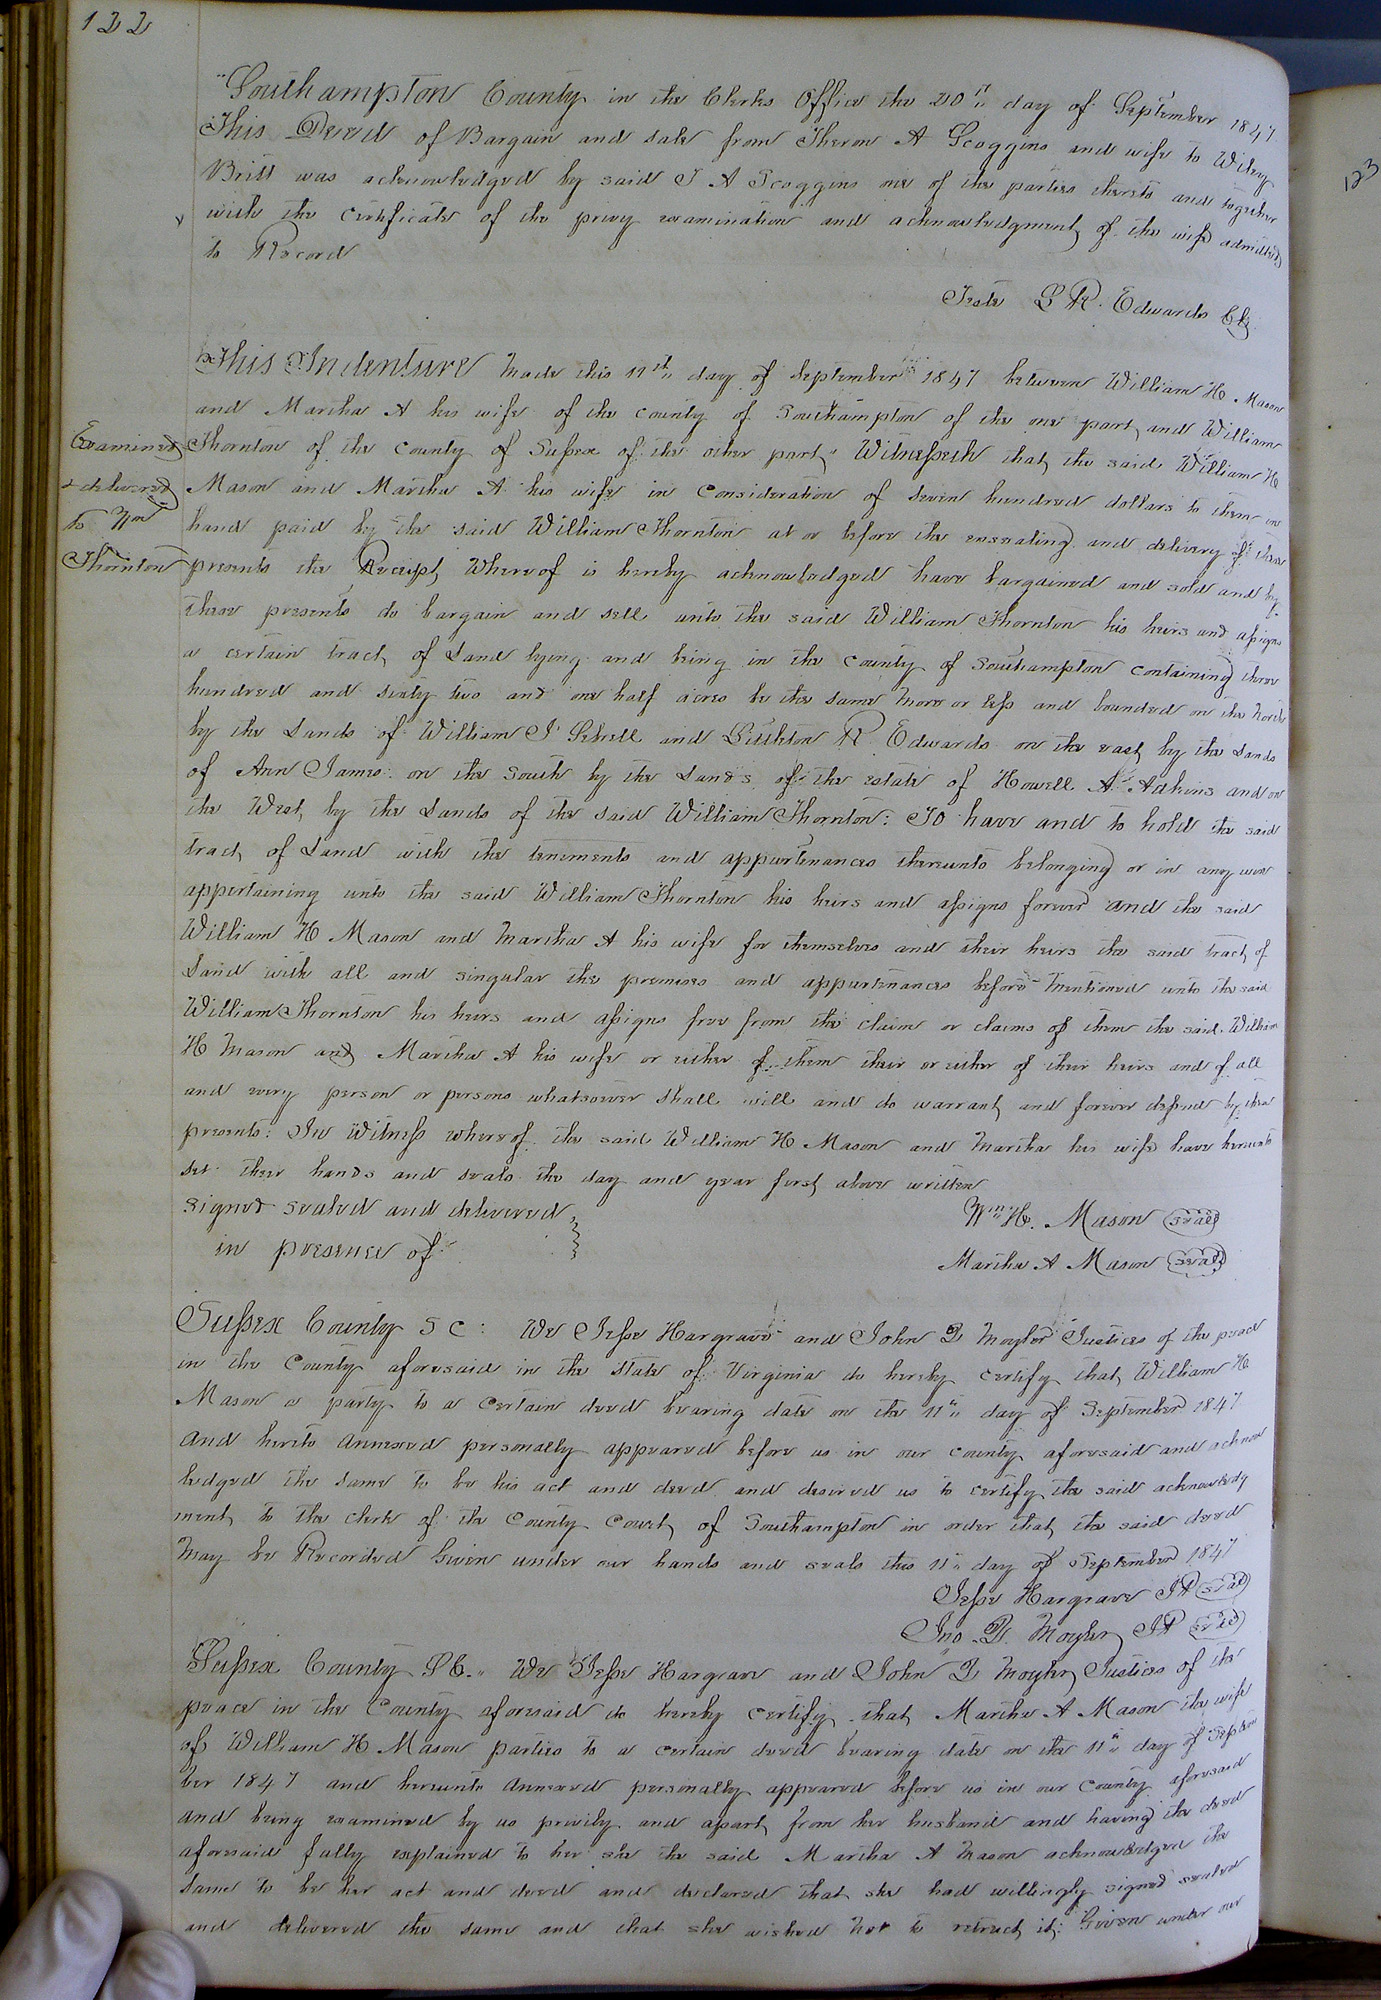 122
Southampton County in the Clerks Office the 20th day of September 1847
This Deed of Bargain and sale from Theron A Scoggins and wife to Wiley
Britt was acknowledged by said T A Scoggins one of the parties thereto and together
with the certificate of the privy examination and acknowledgment of the wife admitted
to Record
Teste L R. Edwards Clk
This Indenture Made this 11th day of September 1847 between William H. Mason
and Martha A his wife of the county of Southampton of the one part and William
Thornton of the County of Sussex of the other part Witnesseth that the said William H
Mason and Martha A his wife in Consideration of Seven hundred dollars to them in
hand paid by the said William Thornton at or before the ensealing and delivery of these
presents the Receipt Whereof is hereby acknowledged have bargained and sold and by
these presents do bargain and sell unto the said William Thornton his heirs and assigns
a certain tract of Land lying and being in the County of Southampton containing three
hundred and sixty two and one half acres be the same more or less and bounded on the North
by the Lands of William J Sebrell and Littleton R Edwards on the east by the Lands
of Ann James on the South by the Lands of the estate of Howell A Adkins and on
the West by the Lands of the said William Thornton: To have and to hold the said
tract of Land with the tenements and appurtenances thereunto belonging or in any wise
appertaining unto the said William Thornton his heirs and assigns forever and the said
William H Mason and Martha A his wife for themselves and their heirs the said tract of
Land with all and singular the premises and appurtenances before mentioned unto the said
William Thornton his heirs and assigns free from the claim or claims of them the said William
H Mason and Martha A his wife or either of them their or either of their heirs and of all
and every person or persons whatsoever Shall will and do warrant and forever defend by these
presents: In Witness whereof the said William H Mason and Martha his wife have hereunto
set their hands and seals the day and year first above written
Signed sealed and delivered
in presence of
Wm H. Mason (seal)
Martha A Mason (seal)
Examined
& delivered
to Wm
Thornton
Sussex County S C: We Jesse Hargrave and John D Moyler Justices of the peace
in the County aforesaid in the State of Virginia do hereby certify that William H
Mason a party to a certain deed bearing date on the 11th day of September 1847
And hereto annexed personally appeared before us in our County aforesaid and acknow
ledged the same to be his act and deed and desired us to certify the said acknowledg
ment to the clerk of the County Court of Southampton in order that the said deed
May be Recorded Given under our hands and seals this 11th day of September 1847
Jesse Hargrave JP (seal)
Jno. D. Moyler JP (seal)
Sussex County S C. We Jesse Hargrave and John D Moyler Justices of the
peace in the County aforesaid do hereby certify that Martha A Mason the wife
of William H Mason parties to a certain deed bearing date on the 11th day of Septem
ber 1847 and hereunto annexed personally appeared before us in our County aforesaid
and being examined by us privily and apart from her husband and having the deed
aforesaid fully explained to her she the said Martha A Mason acknowledged the
same to be her act and deed and declared that she had willingly signed sealed
and delivered the same and that she wished not to retract it: Given under our
123